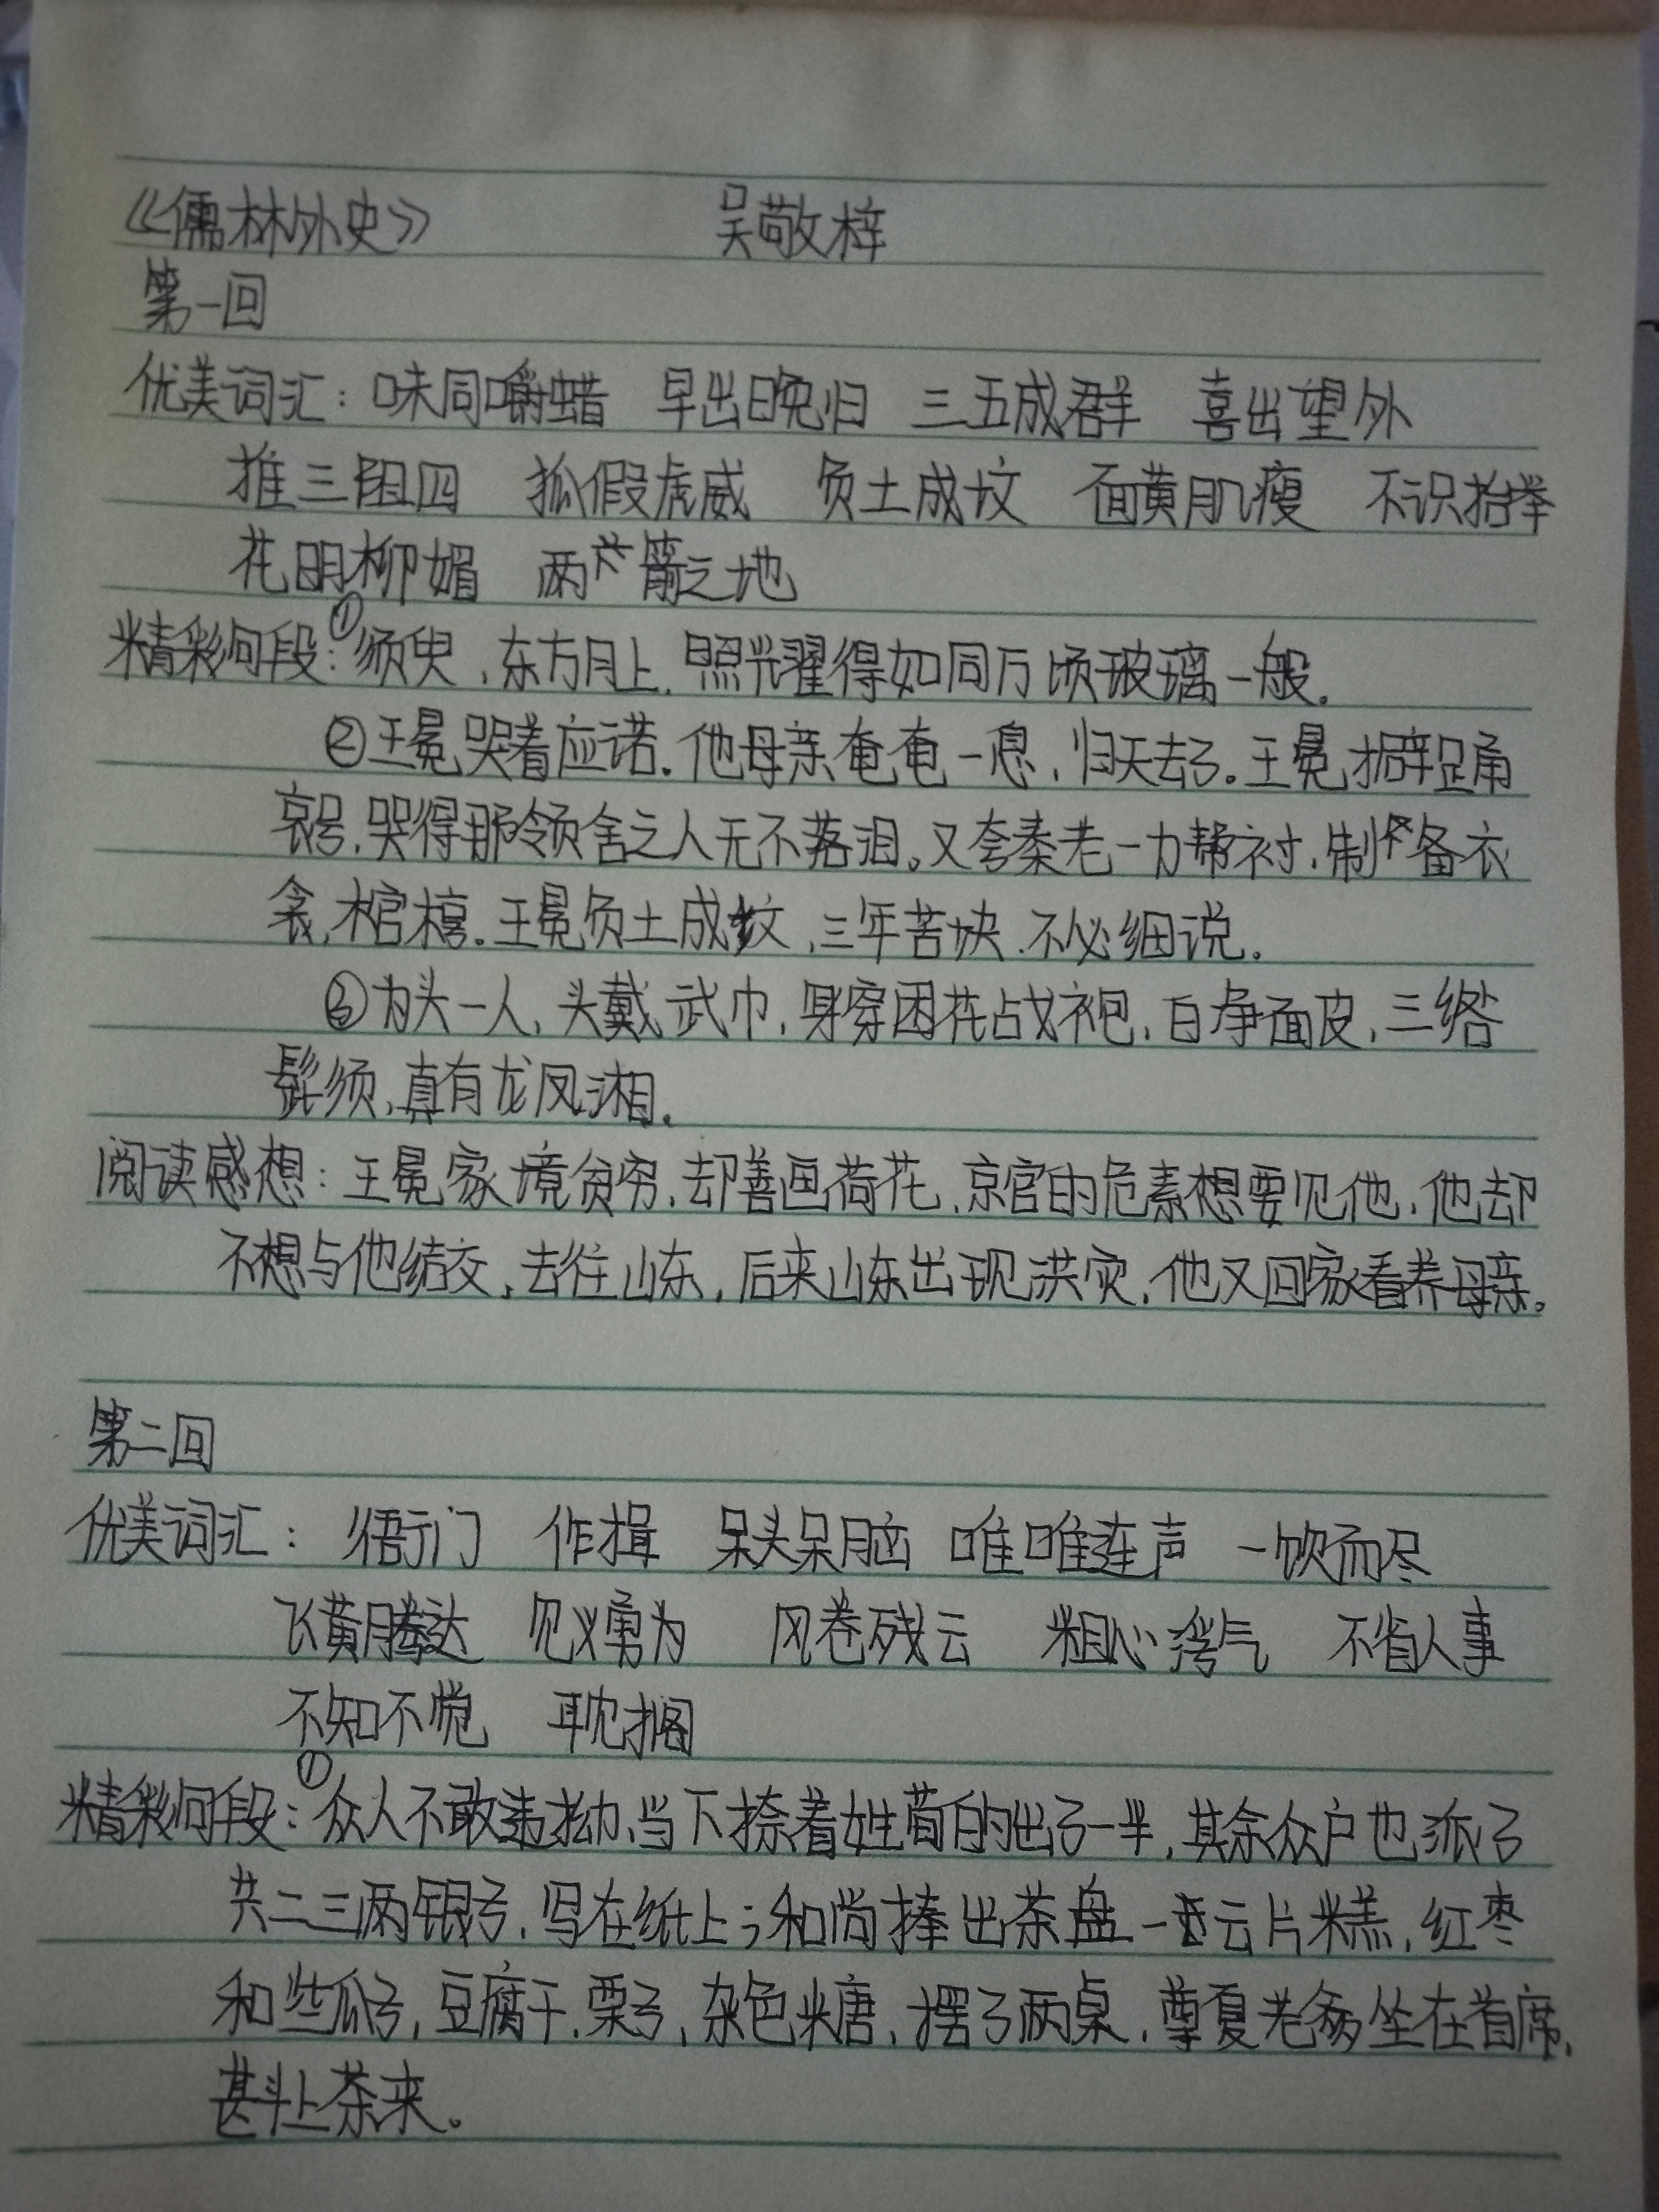 《儒林外史》 吴敬梓
第一回
优美词汇：味同嚼蜡 早出晚归 三五成群 喜出望外
推三阻四 狐假虎威 负土成坟 面黄肌瘦 不识抬举
花明柳媚 两箭之地
精彩句段：①须臾，东方月上，照耀得如同万顷玻璃一般。
②王冕哭着应诺。他母亲奄奄一息，归天去了。王冕擗踊
哀号，哭得那领舍之人无不落泪。又夸秦老一力帮衬，制备衣
衾，棺椁。王冕负土成坟，三年苫块，不必细说。
③为头一人，头戴武巾，身穿团花战袍，白净面皮，三绺
髭须，真有龙凤湘。
阅读感想：王冕家境贫穷，却善画荷花，京官的危素想要见他，他却
不想与他结交，去往山东，后来山东出现洪灾，他又回家看养母亲。
第二回
优美词汇： 门 作揖 呆头呆脑 唯唯连声 一饮而尽
飞黄腾达 见义勇为 风卷残云 粗心 气 不省人事
不知不觉 耽搁
精彩句段：①众人不敢违拗，当下捺着姓荀的出了一半，其余众户也派了
共二三两银子，写在纸上；和尚捧出茶盘一云片糕，红枣
和些瓜子，豆腐干，栗子，杂色糖，摆了两桌，尊夏老爹坐在首席，
甚斗上茶来。